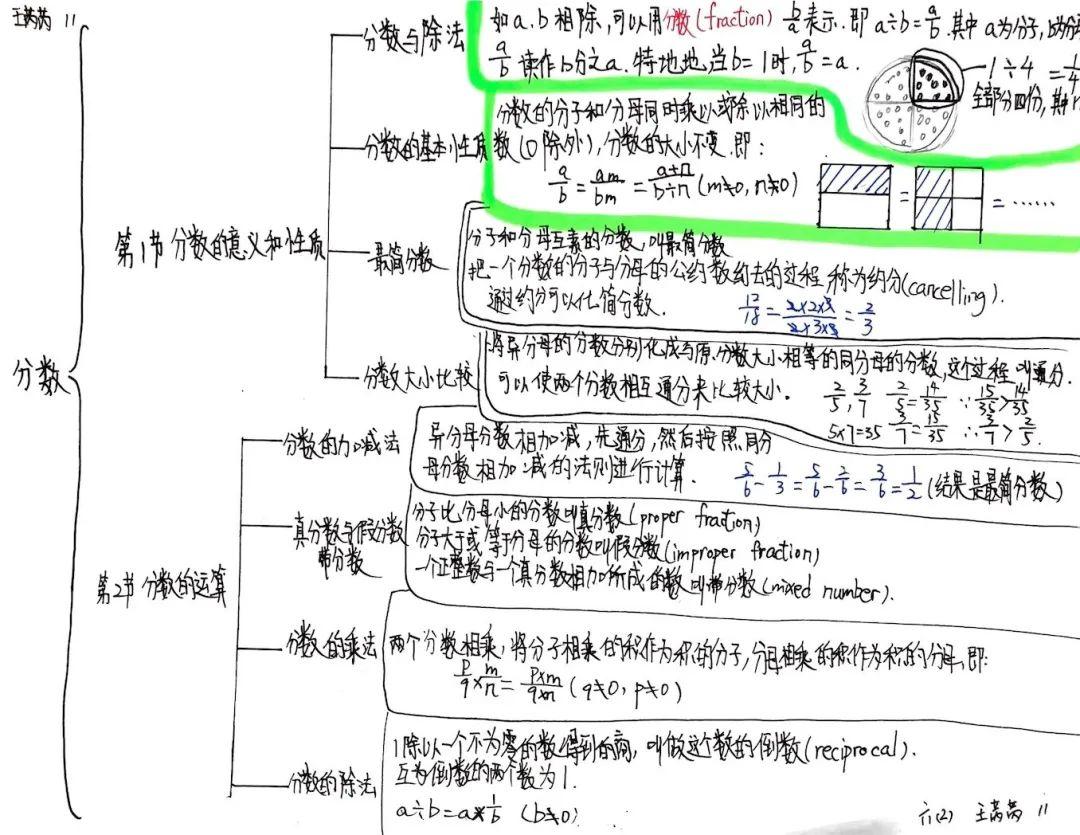 分数
第1节分数的意义和性质
分数与除法
如a.b相除,可以用分数(fraction) b/a表示.即a÷b=a/b.其中a为分子,b为分
a/b读作b分之a.特地地,当b=1时,a/b=a.
1÷4=1/4
全部分四份,其中
分数的基本性质
分数的分子和分母同时乘以或除以相同的
数(0除外),分数的大小不变.即:
a/b=am/bm=a÷n/b÷n(m≠0,n≠0)
= = ……
最简分数
分子和分母互素的分数,叫最简分数
把一个分数的分子与分母的公约数约去的过程,称为约分(cancelling).
通过约分可以化简分数.
12/18=2×2×3/2×3×3=2/3
分数大小比较
将异分母的分数分别化成与原分数大小相等的同分母的分数,这个过程叫通分.
可以使两个分数相互通分来比较大小.
2/5,3/7 2/5=14/35 ∵15/35>14/35
5×7=35 3/7=15/35 ∴3/7>2/5.
第2节分数的运算
分数的加减法
异分母分数相加减,先通分,然后按照同分
母分数相加减的法则进行计算.
5/6-1/3=5/6-2/6=3/6=1/2(结果是最简分数)
真分数与假分数
带分数
分子比分母小的分数叫真分数(proper fraction)
分子大于或等于分母的分数叫假分数(improper fraction)
一个正整数与一个真分数相加所成的数叫带分数(mixed number).
分数的乘法
两个分数相乘,将分子相乘的积作为积的分子,分母相乘的积作为积的分母,即:
p/q×m/n=p×m/q×n(q≠0,p≠0)
分数的除法
1除以一个不为零的数得到的商,叫做这个数的倒数(reciprocal).
互为倒数的两个数为1.
a÷b=a×1/b (b≠0)
六(2) 11